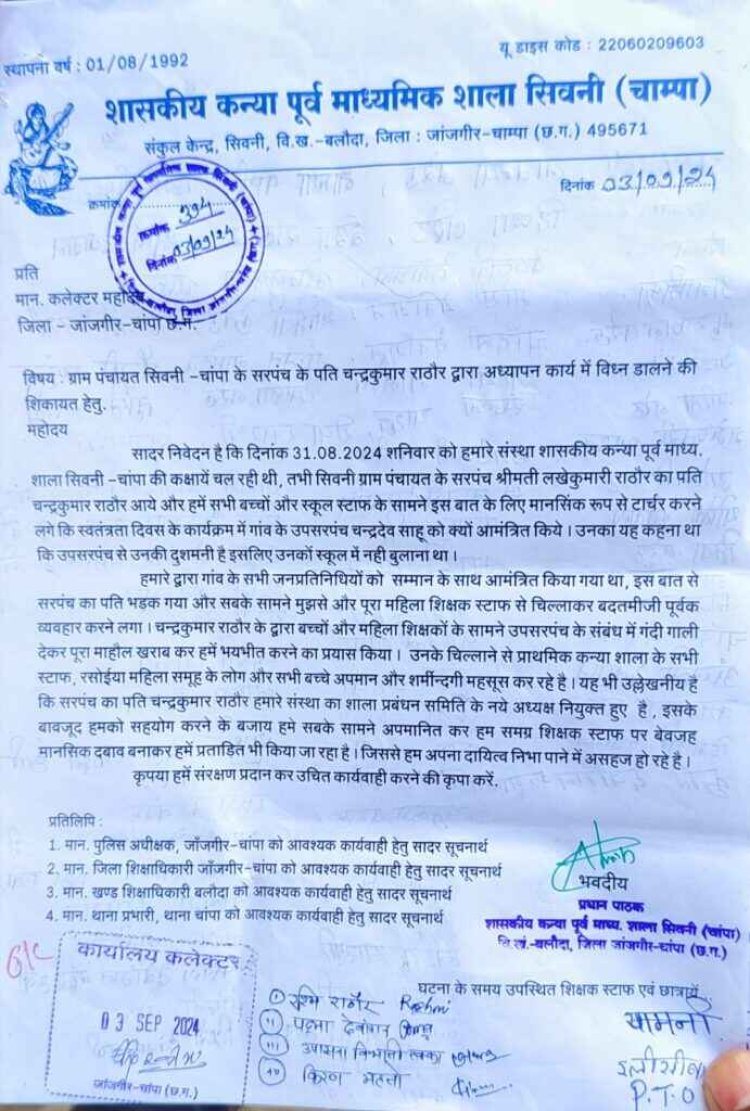 स्थापना वर्ष : 01/08/1992
यू डाइस कोड : 22060209603
शासकीय कन्या पूर्व माध्यमिक शाला सिवनी (चाम्पा)
संकुल केन्द्र, सिवनी, वि.ख.-बलौदा, जिला : जांजगीर-चाम्पा (छ.ग.) 495671
क्रमांक
दिनांक 03/09/24
क्रमांक 394
दिनांक 03/09/24
प्रति
मान. कलेक्टर महोदय
जिला - जांजगीर-चांपा छ.ग.
विषय : ग्राम पंचायत सिवनी -चांपा के सरपंच के पति चन्द्रकुमार राठौर द्वारा अध्यापन कार्य में विध्न डालने की
शिकायत हेतु.
महोदय
सादर निवेदन है कि दिनांक 31.08.2024 शनिवार को हमारे संस्था शासकीय कन्या पूर्व माध्य.
शाला सिवनी -चांपा की कक्षायें चल रही थी, तभी सिवनी ग्राम पंचायत के सरपंच श्रीमती लखेकुमारी राठौर का पति
चन्द्रकुमार राठौर आये और हमें सभी बच्चों और स्कूल स्टाफ के सामने इस बात के लिए मानसिक रूप से टार्चर करने
लगे कि स्वतंत्रता दिवस के कार्यक्रम में गांव के उपसरपंच चन्द्रदेव साहू को क्यों आमंत्रित किये । उनका यह कहना था
कि उपसरपंच से उनकी दुशमनी है इसलिए उनकों स्कूल में नही बुलाना था ।
हमारे द्वारा गांव के सभी जनप्रतिनिधियों को सम्मान के साथ आमंत्रित किया गया था, इस बात से
सरपंच का पति भड़क गया और सबके सामने मुझसे और पूरा महिला शिक्षक स्टाफ से चिल्लाकर बदतमीजी पूर्वक
व्यवहार करने लगा । चन्द्रकुमार राठौर के द्वारा बच्चों और महिला शिक्षकों के सामने उपसरपंच के संबंध में गंदी गाली
देकर पूरा माहौल खराब कर हमें भयभीत करने का प्रयास किया । उनके चिल्लाने से प्राथमिक कन्या शाला के सभी
स्टाफ, रसोईया महिला समूह के लोग और सभी बच्चे अपमान और शर्मीन्दगी महसूस कर रहे है । यह भी उल्लेखनीय है
कि सरपंच का पति चन्द्रकुमार राठौर हमारे संस्था का शाला प्रबंधन समिति के नये अध्यक्ष नियुक्त हुए है , इसके
बावजूद हमको सहयोग करने के बजाय हमे सबके सामने अपमानित कर हम समग्र शिक्षक स्टाफ पर बेवजह
मानसिक दबाव बनाकर हमें प्रताड़ित भी किया जा रहा है । जिससे हम अपना दायित्व निभा पाने में असहज हो रहे है ।
कृपया हमें संरक्षण प्रदान कर उचित कार्यवाही करने की कृपा करें.
प्रतिलिपि :
1. मान. पुलिस अधीक्षक, जाँजगीर-चांपा को आवश्यक कार्यवाही हेतु सादर सूचनार्थ
2. मान. जिला शिक्षाधिकारी जाँजगीर-चांपा को आवश्यक कार्यवाही हेतु सादर सूचनार्थ
3. मान. खण्ड शिक्षाधिकारी बलौदा को आवश्यक कार्यवाही हेतु सादर सूचनार्थ
4. मान. थाना प्रभारी, थाना चांपा को आवश्यक कार्यवाही हेतु सादर सूचनार्थ
भवदीय
प्रधान पाठक
शासकीय कन्या पूर्व माध्य. शाला सिवनी (चांपा)
वि.खं.-बलौदा, जिला जांजगीर-चांपा (छ.ग.)
कार्यालय कलेक्टर
03 SEP 2024
जांजगीर-चांपा (छ.ग.)
घटना के समय उपस्थित शिक्षक स्टाफ एवं छात्रायें
① रश्मि राठौर Rashmi
(11) पद्मा देवांगन
(111) उपासना
(iv) किरण महतो
यामनी
P.T.O